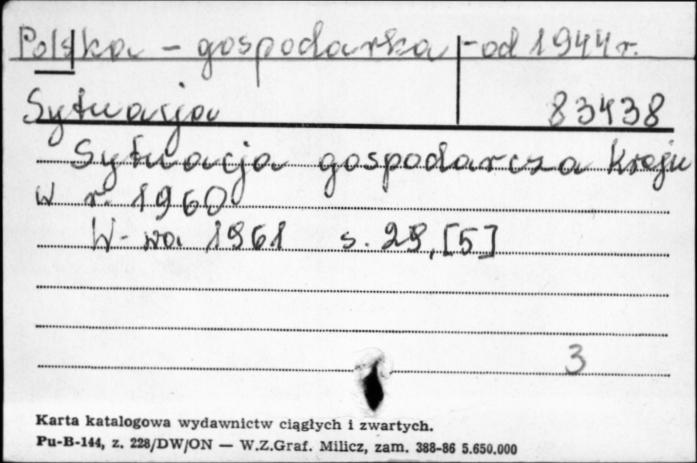 Polska - gospodarka - od 1944 r.
Sytuacja 83438
Sytuacja gospodarcza Kraju
w r. 1960
W-wa 1961 s. 29, [5]
3
Karta katalogowa wydawnictw ciągłych i zwartych.
Pu-B-144, z. 228/DW/ON — W.Z.Graf. Milicz, zam. 388-86 5.650.000